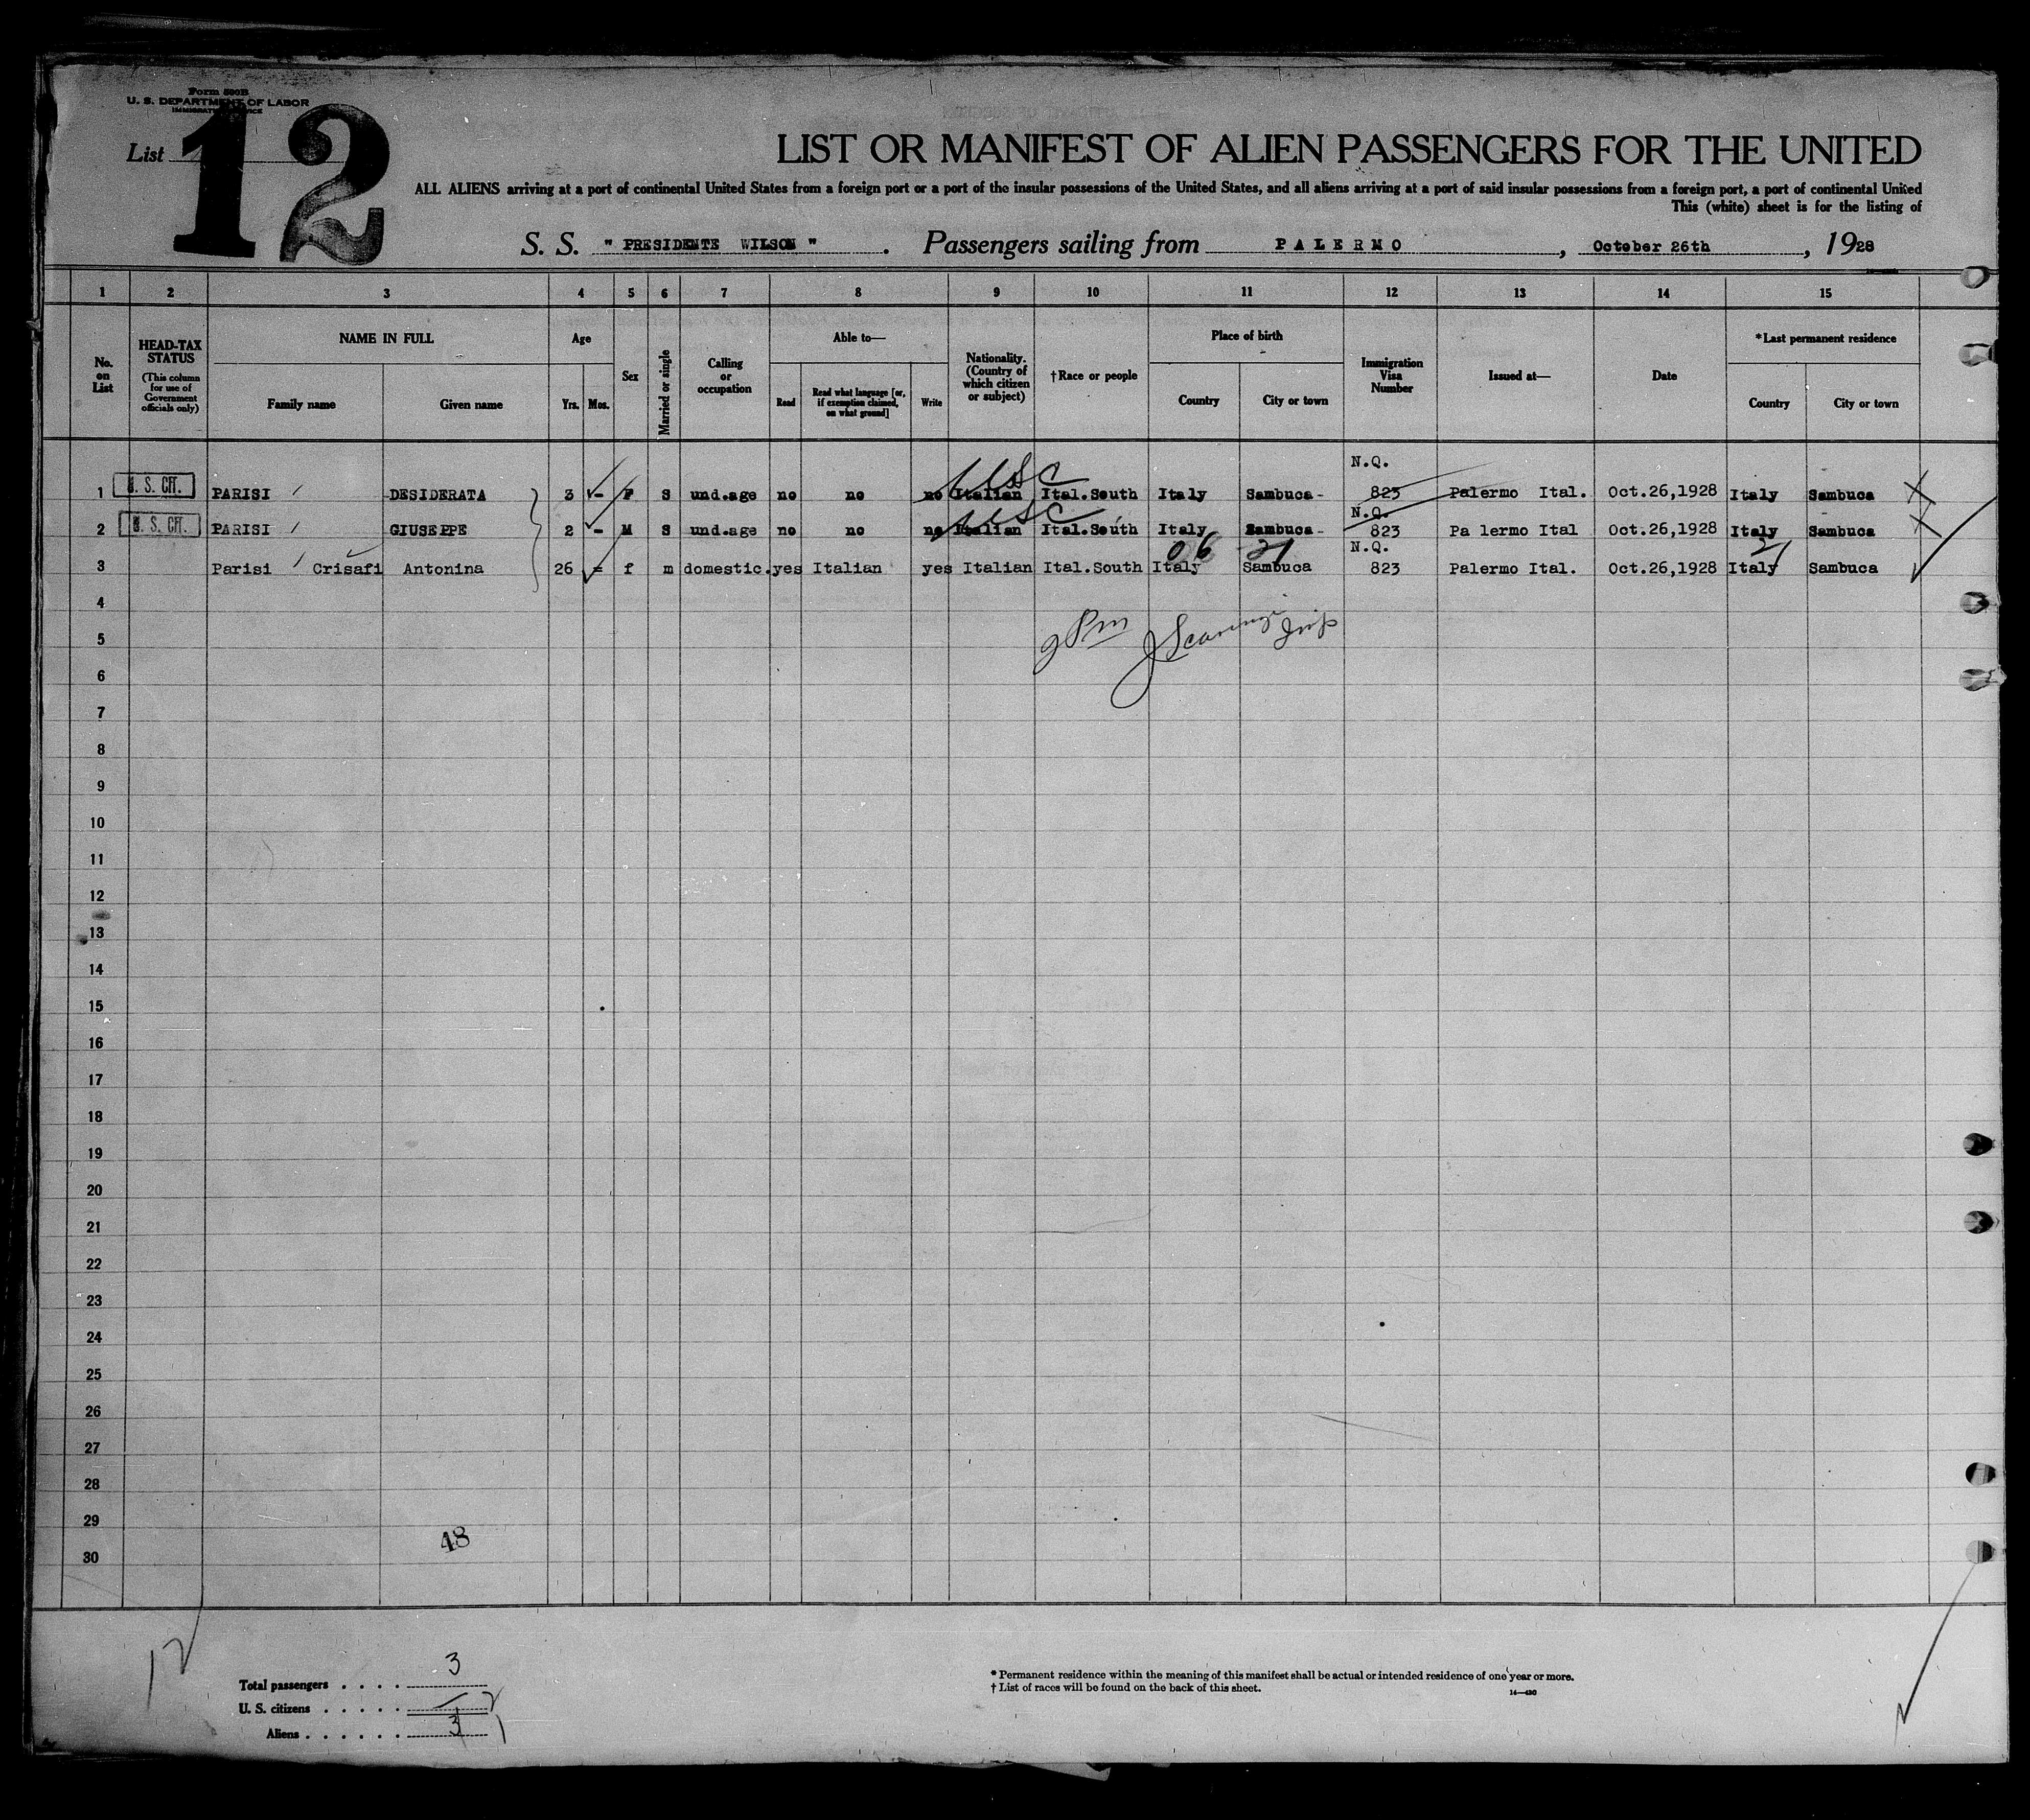 Form 500B
U. S. DEPARTMENT OF LABOR
IMMIGRATION SERVICE
List
12
LIST OR MANIFEST OF ALIEN PASSENGERS FOR THE UNITED
ALL ALIENS arriving at a port of continental United States from a foreign port or a port of the insular possessions of the United States, and all aliens arriving at a port of said insular possessions from a foreign port, a port of continental United
This (white) sheet is for the listing of
S. S. " PRESIDENTE WILSON " . Passengers sailing from PALERMO , October 26th , 1928
1 2 3 4 5 6 7 8 9 10 11 12 13 14 15
No. on List
HEAD-TAX STATUS (This column for use of Government officials only)
NAME IN FULL
Family name Given name
Age
Yrs. Mos.
Sex
Married or single
Calling or occupation
Able to—
Read Read what language [or, if exemption claimed, on what ground] Write
Nationality. (Country of which citizen or subject)
†Race or people
Place of birth
Country City or town
Immigration Visa Number
Issued at—
Date
*Last permanent residence
Country City or town
USC N.Q.
1 U. S. CIT. PARISI DESIDERATA 3 - F S und.age no no no Italian Ital.South Italy Sambuca- 823 Palermo Ital. Oct.26,1928 Italy Sambuca X
USC N.Q.
2 U. S. CIT. PARISI GIUSEPPE 2 - M S und.age no no no Italian Ital.South Italy Sambuca- 823 Pa lermo Ital Oct.26,1928 Italy Sambuca X
06 21 N.Q. 21
3 Parisi Crisafi Antonina 26 = f m domestic. yes Italian yes Italian Ital.South Italy Sambuca 823 Palermo Ital. Oct.26,1928 Italy Sambuca
4
5
6
7
8
9
10
11
12
13
14
15
16
17
18
19
20
21
22
23
24
25
26
27
28
29
48
30
12
Total passengers . . . . 3
U. S. citizens . . . . . 2
Aliens . . . . . . 3 1
* Permanent residence within the meaning of this manifest shall be actual or intended residence of one year or more.
† List of races will be found on the back of this sheet.
14—430